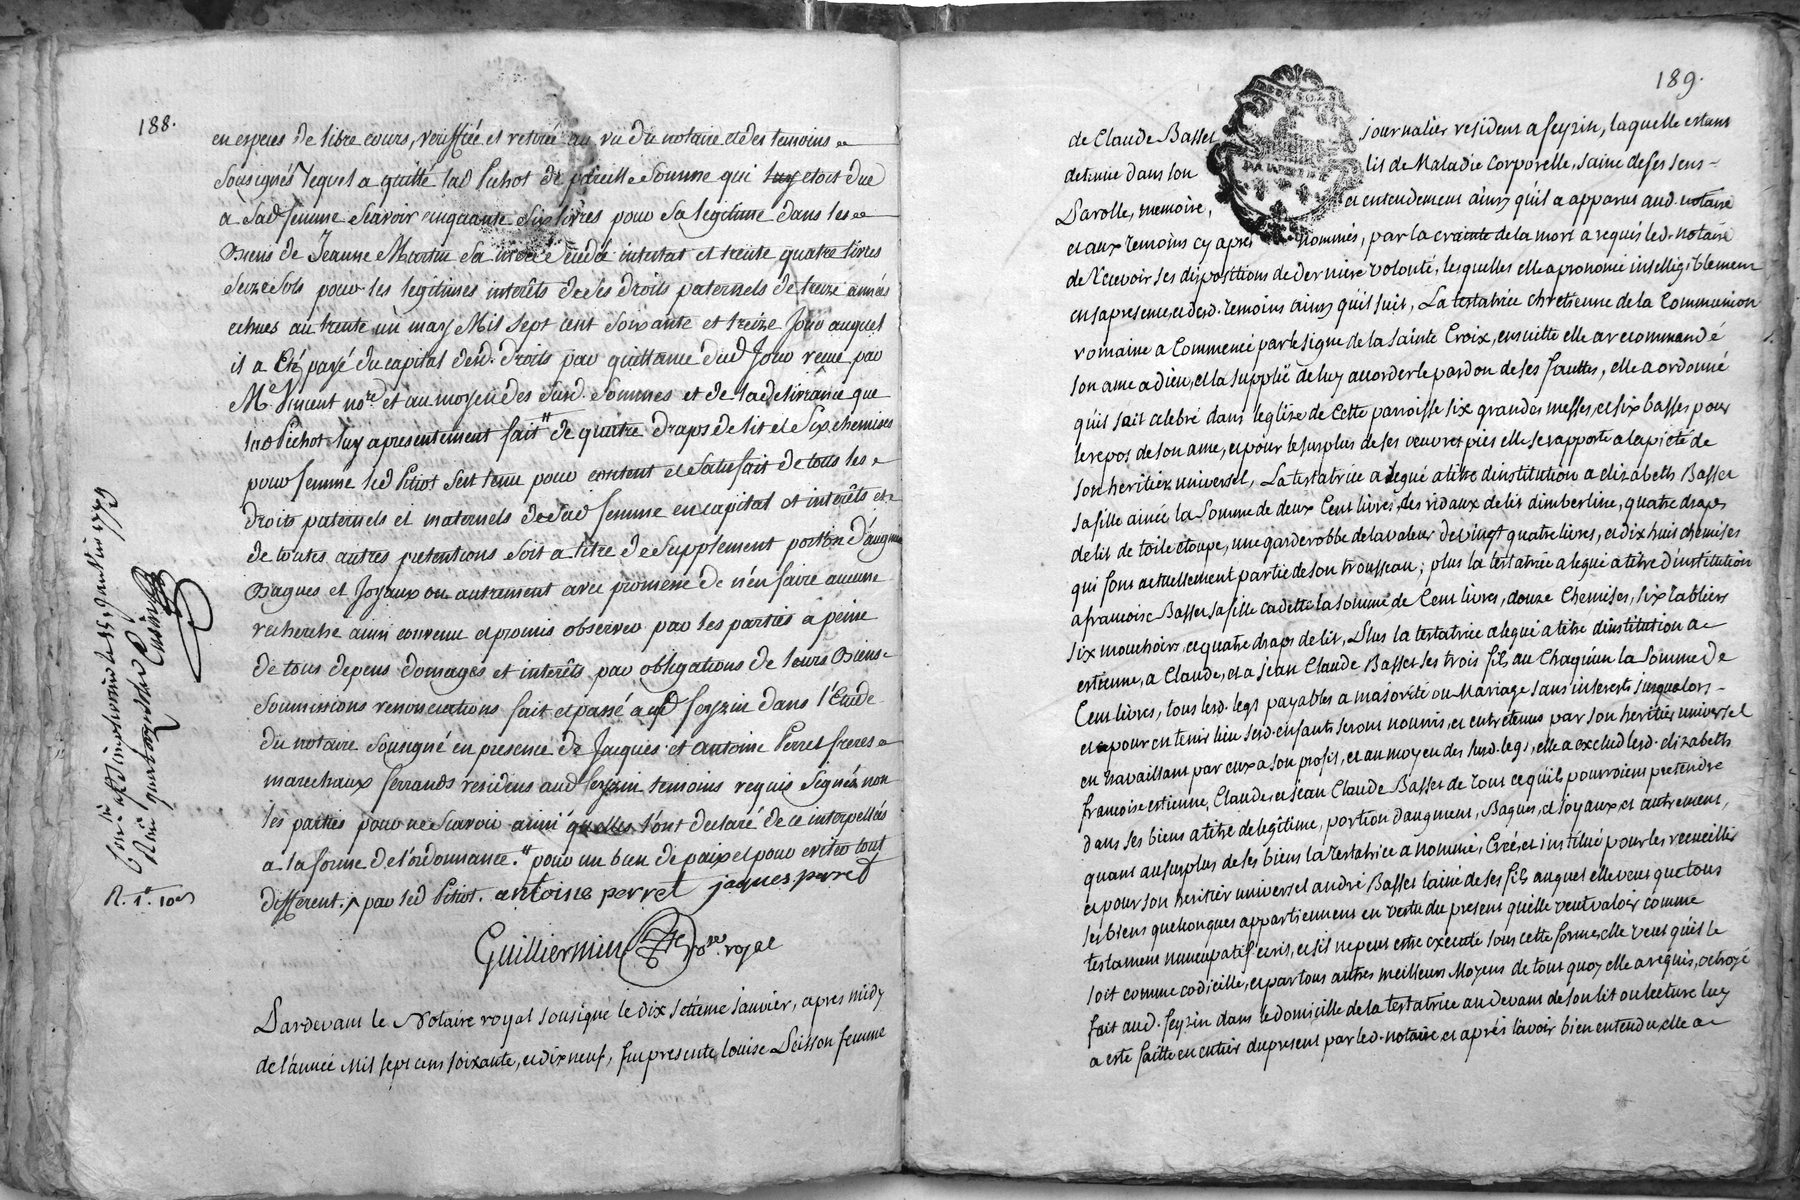 188.
en especes de libre cours, veriffiée et retirée au vu du notaire et des temoins
sousignés lequel a quitté led Pichot de pareille somme qui luy etoit due
a sad femme scavoir cinquante six livres pour sa legitime dans les
Biens de Jeanne Martin sa decedée intestat et trente quatre livres
seize sols pour les legitimes interêts de ses droits paternels de treize années
echues au trente un may Mil sept cent soixante et treize jour auquel
il a eté payé du capital desd. droits par quittance dud Jour recue par
Me Vincent nore et au moyen des susd. sommes et de la delivrance que
led Pichot luy a presentement fait de quatre draps de lit et six chemises
pour femme led Pitiot s'est tenu pour content et satisfait de tous les
droits paternels et maternels de sad femme en capital et interêts et
de toutes autres pretentions soit a titre de supplement portion d'augment
Bagues et Joyaux ou autrement avec promesse de n'en faire aucune
recherche ainsi convenu et promis observer par les parties a peine
de tous depens domages et interêts par obligations de leurs Biens
soumissions renonciations fait et passé aud feyzin dans l'Etude
du notaire sousigné en presence de Jacques et antoine Perret freres
marechaux ferrands residens aud feyzin temoins requis signés non
les parties pour ne scavoir ainsi qu'elles l'ont declaré de ce interpellés
a la forme de l'ordonnance. pour un bien de paix et pour eviter tout
different. par led Pitiot. antoine perret jaques perret
Guilliermin nore royal
Pardevant le Notaire royal sousigné le dix setieme janvier, apres midy
de l'année mil sept cens soixante, et dix neuf, fut presente louise Peisson femme
R. 1# 10s
189.
de Claude Basset journalier resident a feyzin, laquelle estant
detenue dans son lit de Maladie corporelle, saine de ses sens
Parolle, memoire, et entendement ainsy qu'il a apparus aud. notaire
et aux temoins cy apres nommés, par la crainte de la mort a requis led. notaire
de Recevoir ses dispositions de derniere volonté, lesquelles elle a prononcé intelligiblement
en sa presence, et desd. temoins ainsy qu'il suit, La testatrice chretienne de la Communion
romaine a Commencé par le signe de la sainte Croix, ensuitte elle a recommandé
son ame a dieu, et la supplié de luy accorder le pardon de ses fauttes, elle a ordonné
qu'il soit celebré dans l'eglise de Cette parroisse six grandes messes, et six basses pour
le repos de son ame, et pour le surplus de ses œuvres pies elle se rapporte a la pieté de
son heritier universel, La testatrice a legué a titre d'institution a elizabeth Basset
sa fille ainée la somme de deux Cent livres, des ridaux de lit dimberline, quatre draps
de lit de toile etoupe, une garderobbe de la valeur de vingt quatre livres, et dix huit chemises
qui sont actuellement partie de son trousseau; plus la testatrice a legué a titre d'institution
a francoise Basset sa fille cadette la somme de Cent livres, douze Chemises, six tabliers
six mouchoirs, et quatre draps de lit, Plus la testatrice a legué a titre d'institution a
estienne, a Claude, et a jean Claude Basset ses trois fils au Chaq'un la somme de
Cent livres, tous lesd. legs payables a majorité ou Mariage sans interests jusqu'alors
et pour en tenir lieu sesd. enfants seront nourris, et entretenus par son heritier universel
en travaillant par eux a son profit, et au moyen des susd. legs, elle a exclud lesd. elizabeth
francoise estienne, Claude, et jean Claude Basset de tout ce qu'ils pourroient pretendre
dans ses biens a titre de legitime, portion d'augment, Bagues, et joyaux, et autrement,
quant au surplus de ses biens la testatrice a nommé, Créé, et institué pour les recueillir
et pour son heritier universel andré Basset lainé de ses fils auquel elle veut que tous
ses biens quelconques appartiennent en vertu du present qu'elle veut valoir comme
testament nuncupatif ecrit, et s'il ne peut estre executé sous cette forme, elle veut qu'il le
soit comme codicille, et par tous autres meilleurs Moyens de tout quoy elle a requis, octroyé
fait aud. feyzin dans le domicille de la testatrice au devant de son lit ou lecture luy
a esté faitte en entier du present par led. notaire, et aprés l'avoir bien entendu, elle a